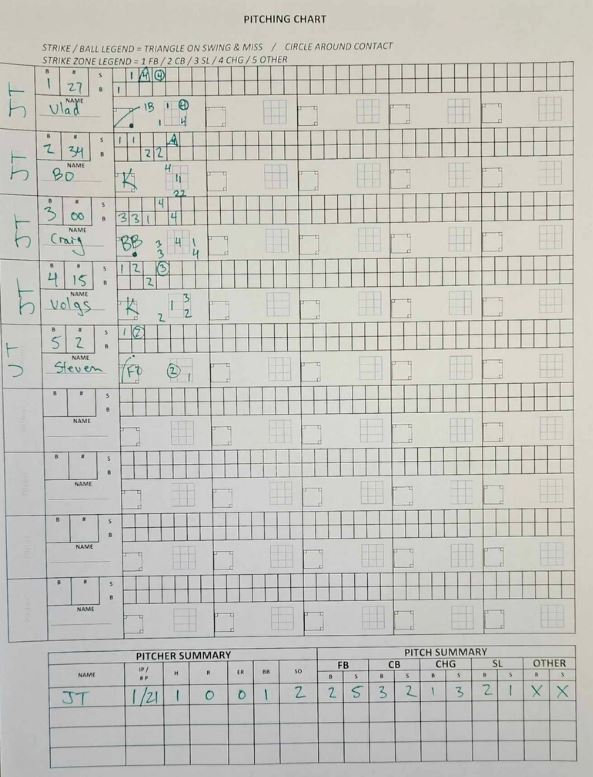 PITCHING CHART
STRIKE / BALL LEGEND = TRIANGLE ON SWING & MISS / CIRCLE AROUND CONTACT
STRIKE ZONE LEGEND = 1 FB / 2 CB / 3 SL / 4 CHG / 5 OTHER
B # S
1 27 1 4 4
B 1
NAME
Vlad 1B 1 4
1 4
JT
B # S 1 1 4
2 34
B 2 2
NAME
BO K 4
11
22
JT
B # S 4
3 00
B 3 3 1 4
NAME
Craig BB 3 4 1
3 4
JT
B # S 1 2 3
4 15
B 2
NAME
Volgs K 1 3
2 2
JT
B # S 1 2
5 2
B
NAME
Steven F8 2 1
JT
B # S
B
NAME
B # S
B
NAME
B # S
B
NAME
B # S
B
NAME
PITCHER SUMMARY PITCH SUMMARY
FB CB CHG SL OTHER
NAME IP / # P H R ER BB SO B S B S B S B S B S
JT 1/21 1 0 0 1 2 2 5 3 2 1 3 2 1 X X